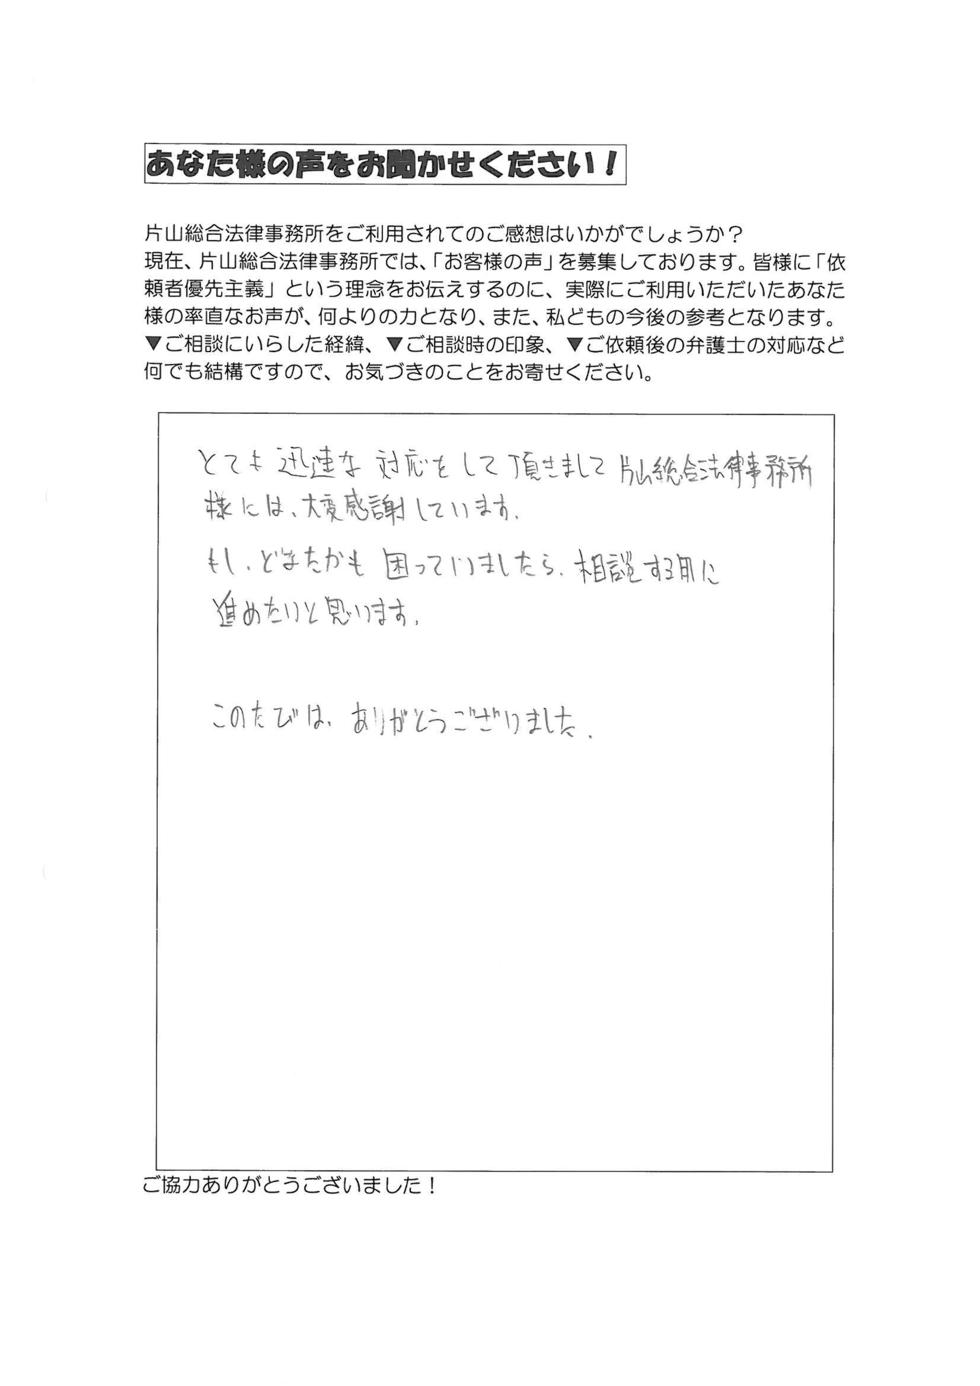 あなた様の声をお聞かせください！
片山総合法律事務所をご利用されてのご感想はいかがでしょうか？
現在、片山総合法律事務所では、「お客様の声」を募集しております。皆様に「依
頼者優先主義」という理念をお伝えするのに、実際にご利用いただいたあなた
様の率直なお声が、何よりの力となり、また、私どもの今後の参考となります。
▼ご相談にいらした経緯、▼ご相談時の印象、▼ご依頼後の弁護士の対応など
何でも結構ですので、お気づきのことをお寄せください。
とても迅速な対応をして頂きまして片山総合法律事務所
様には、大変感謝しています。
もし、どなたかも困っていましたら、相談する用に
進めたいと思います。
このたびは、ありがとうございました.
ご協力ありがとうございました！